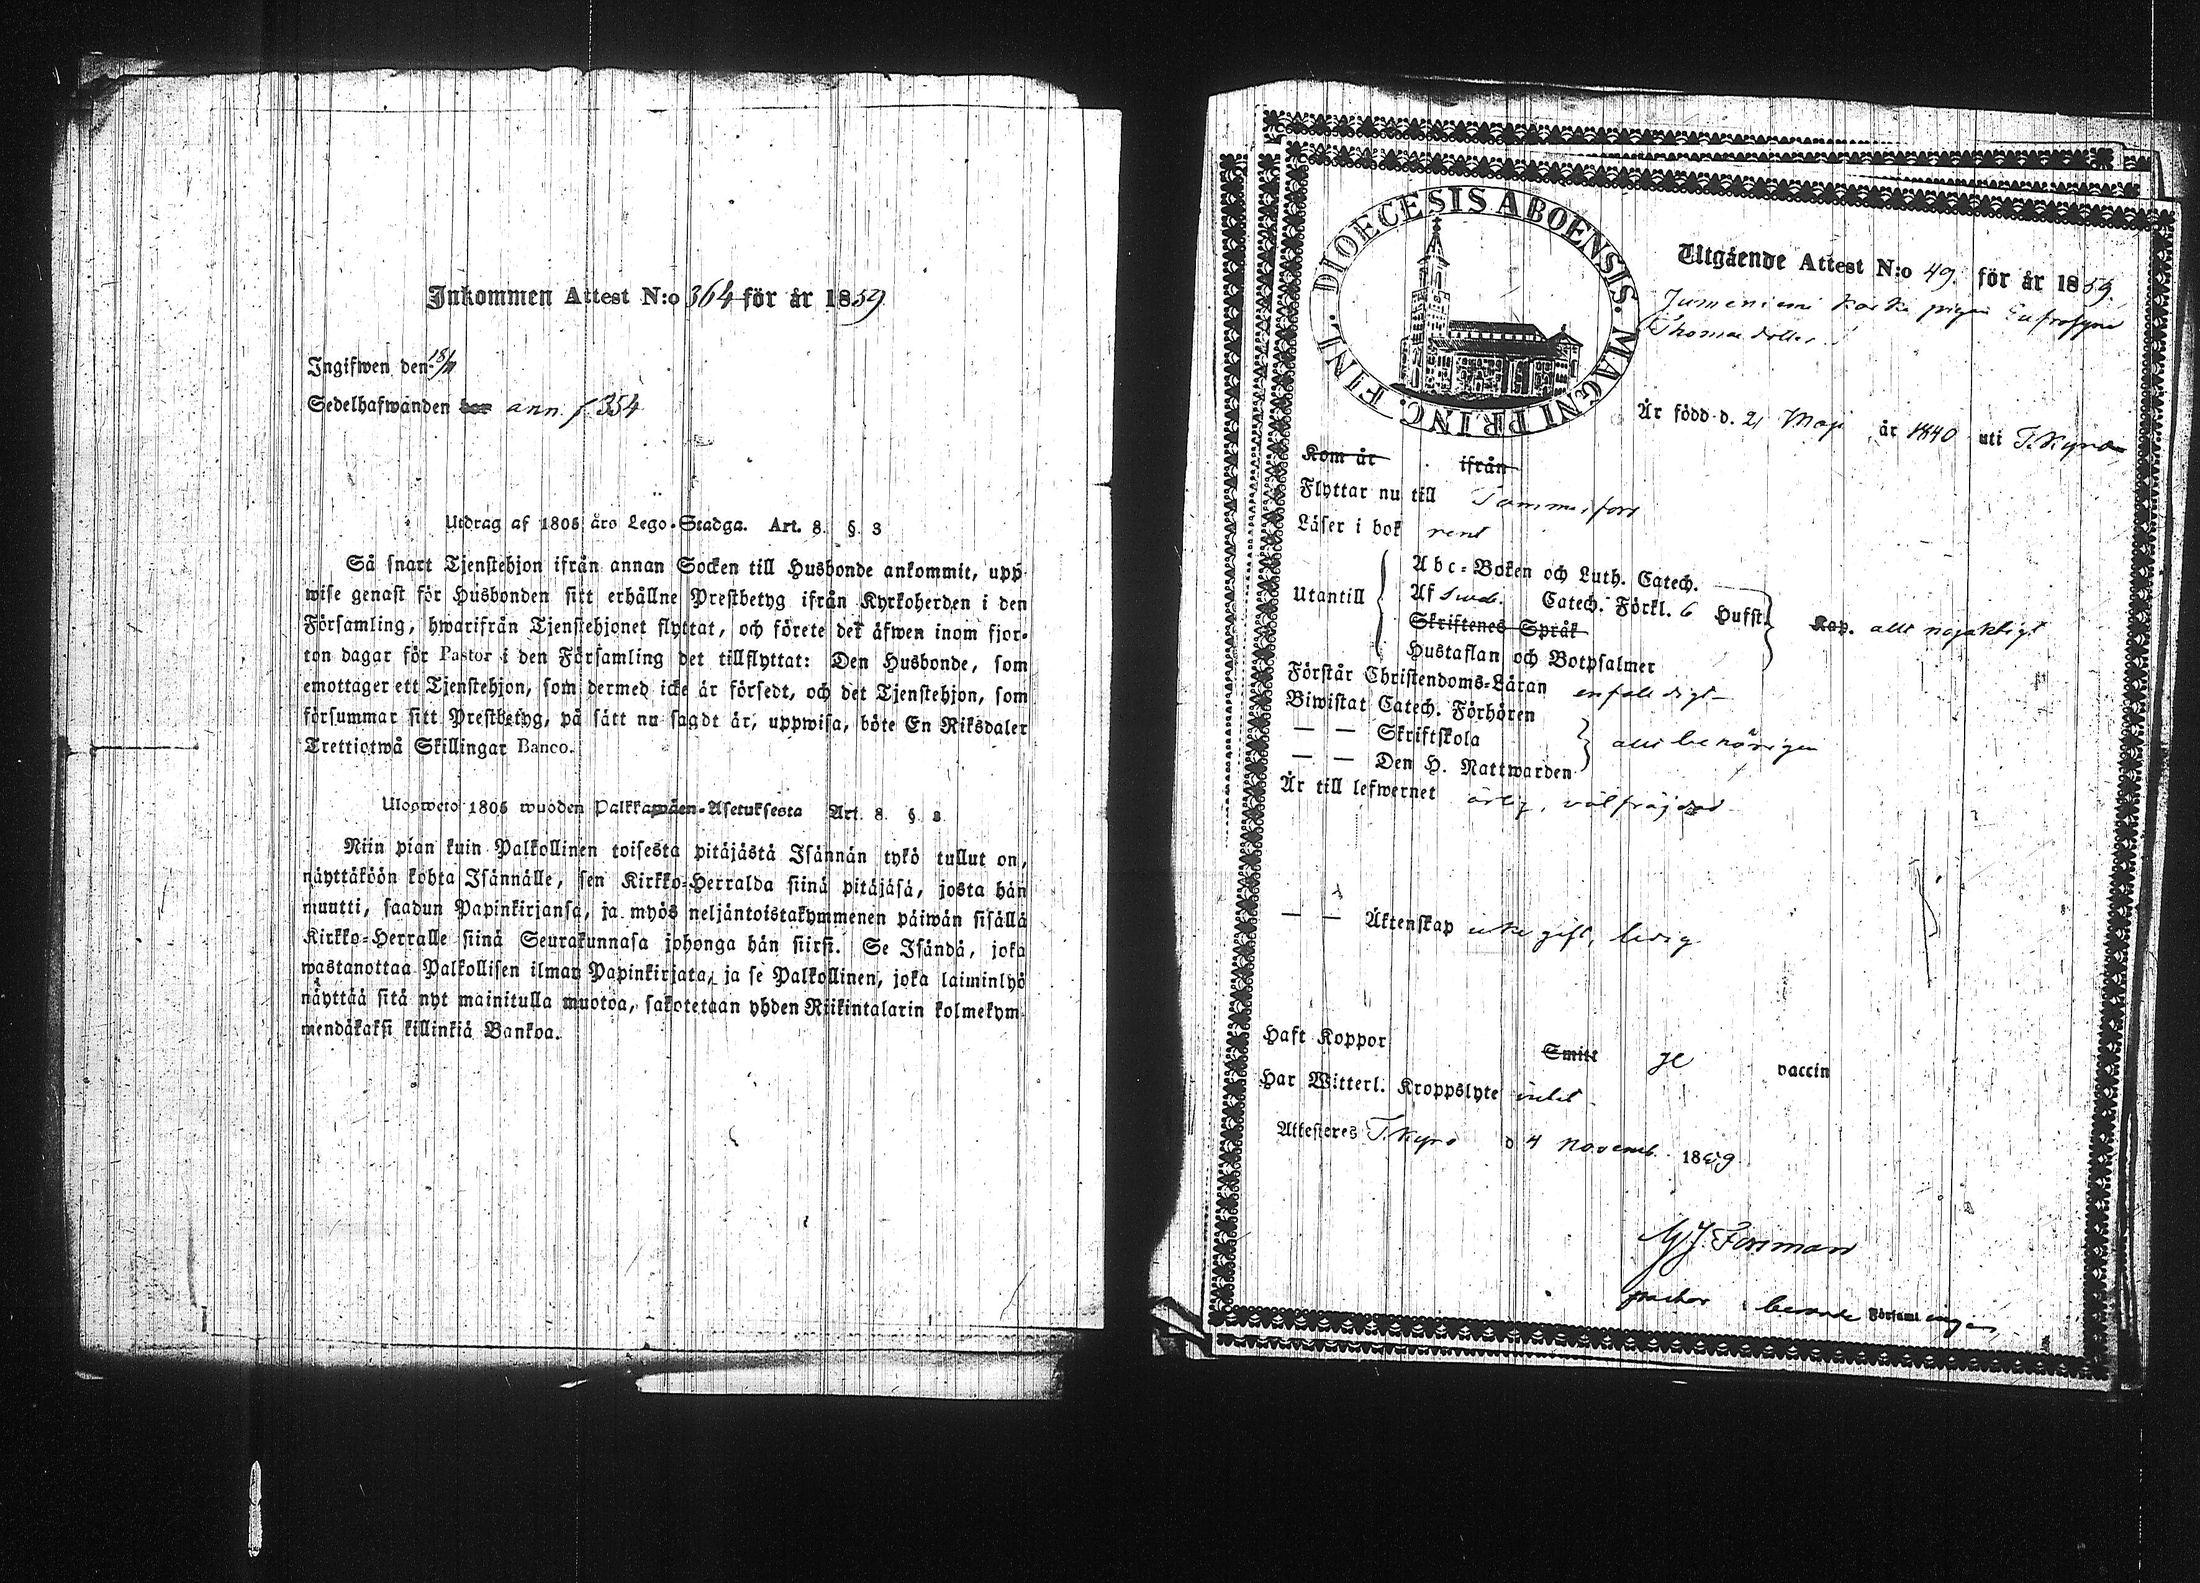 Inkommen Attest N:o 364 för år 1859
Ingifwen den 18/11
Sedelhafwanden bor ann. f. 354
Utdrag af 1805 års Lego-Stadga. Art. 8. §. 3
Så snart Tjenstehjon ifrån annan Socken till Husbonde ankommit, upp-
wise genast för Husbonden sitt erhållne Prestbetyg ifrån Kyrkoherden i den
Församling, hwarifrån Tjenstehjonet flyttat, och förete det äfwen inom fjor-
ton dagar för Pastor i den Församling det tillflyttat: Den Husbonde, som
emottager ett Tjenstehjon, som dermed icke är försedt, och det Tjenstehjon, som
försummar sitt Prestbetyg, på sätt nu sagdt är, uppwisa, böte En Riksdaler
Trettiotwå Skillingar Banco.
Ulosweto 1805 wuoden Palkkawäen-Asetuksesta Art. 8. §. 3
Niin pian kuin Palkollinen toisesta pitäjästä Isännän tykö tullut on,
näyttäköön kohta Isännälle, sen Kirkko-Herralda siinä pitäjäsä, josta hän
muutti, saadun Papinkirjansa, ja myös neljäntoistakymmenen päiwän sisällä
Kirkko-Herralle siinä Seurakunnasa johonga hän siirsi. Se Isändä, joka
wastanottaa Palkollisen ilman Papinkirjata, ja se Palkollinen, joka laiminlyö
näyttää sitä nyt mainitulla muotoa, sakotetaan yhden Riikintalarin kolmekym-
mendäkaksi killinkiä Bankoa.
DIOECESIS ABOENSIS. MAGNI PRINC. FINL.
Utgående Attest N:o 49. för år 1859.
pigan Eufrosyne
Thomasdotter
Är född d. 21 Maji år 1840 uti T. Kyro
Kom år ifrån
Flyttar nu till Tammerfors
Läser i bok rent
Utantill
Abc-Boken och Luth. Catech.
Af Sweb. Catech. Förkl. 6 Hufst.
Skriftenes Språk
Hustaflan och Botpsalmer
Kap. allt nöjaktigt
Förstår Christendoms-Läran enfaldigt
Biwistat Catech. Förhören
— — Skriftskola
— — Den H. Nattwarden
allt behörigen
Är till lefwernet ärlig, välfräjdad
— — Äktenskap icke gift, ledig
Haft Koppor Smitt ge vaccin
Har Witterl. Kroppslyte intet
Attesteres T. Kyro d 4 novemb. 1859
M J. Forsman
pastor i berörde Församlingen